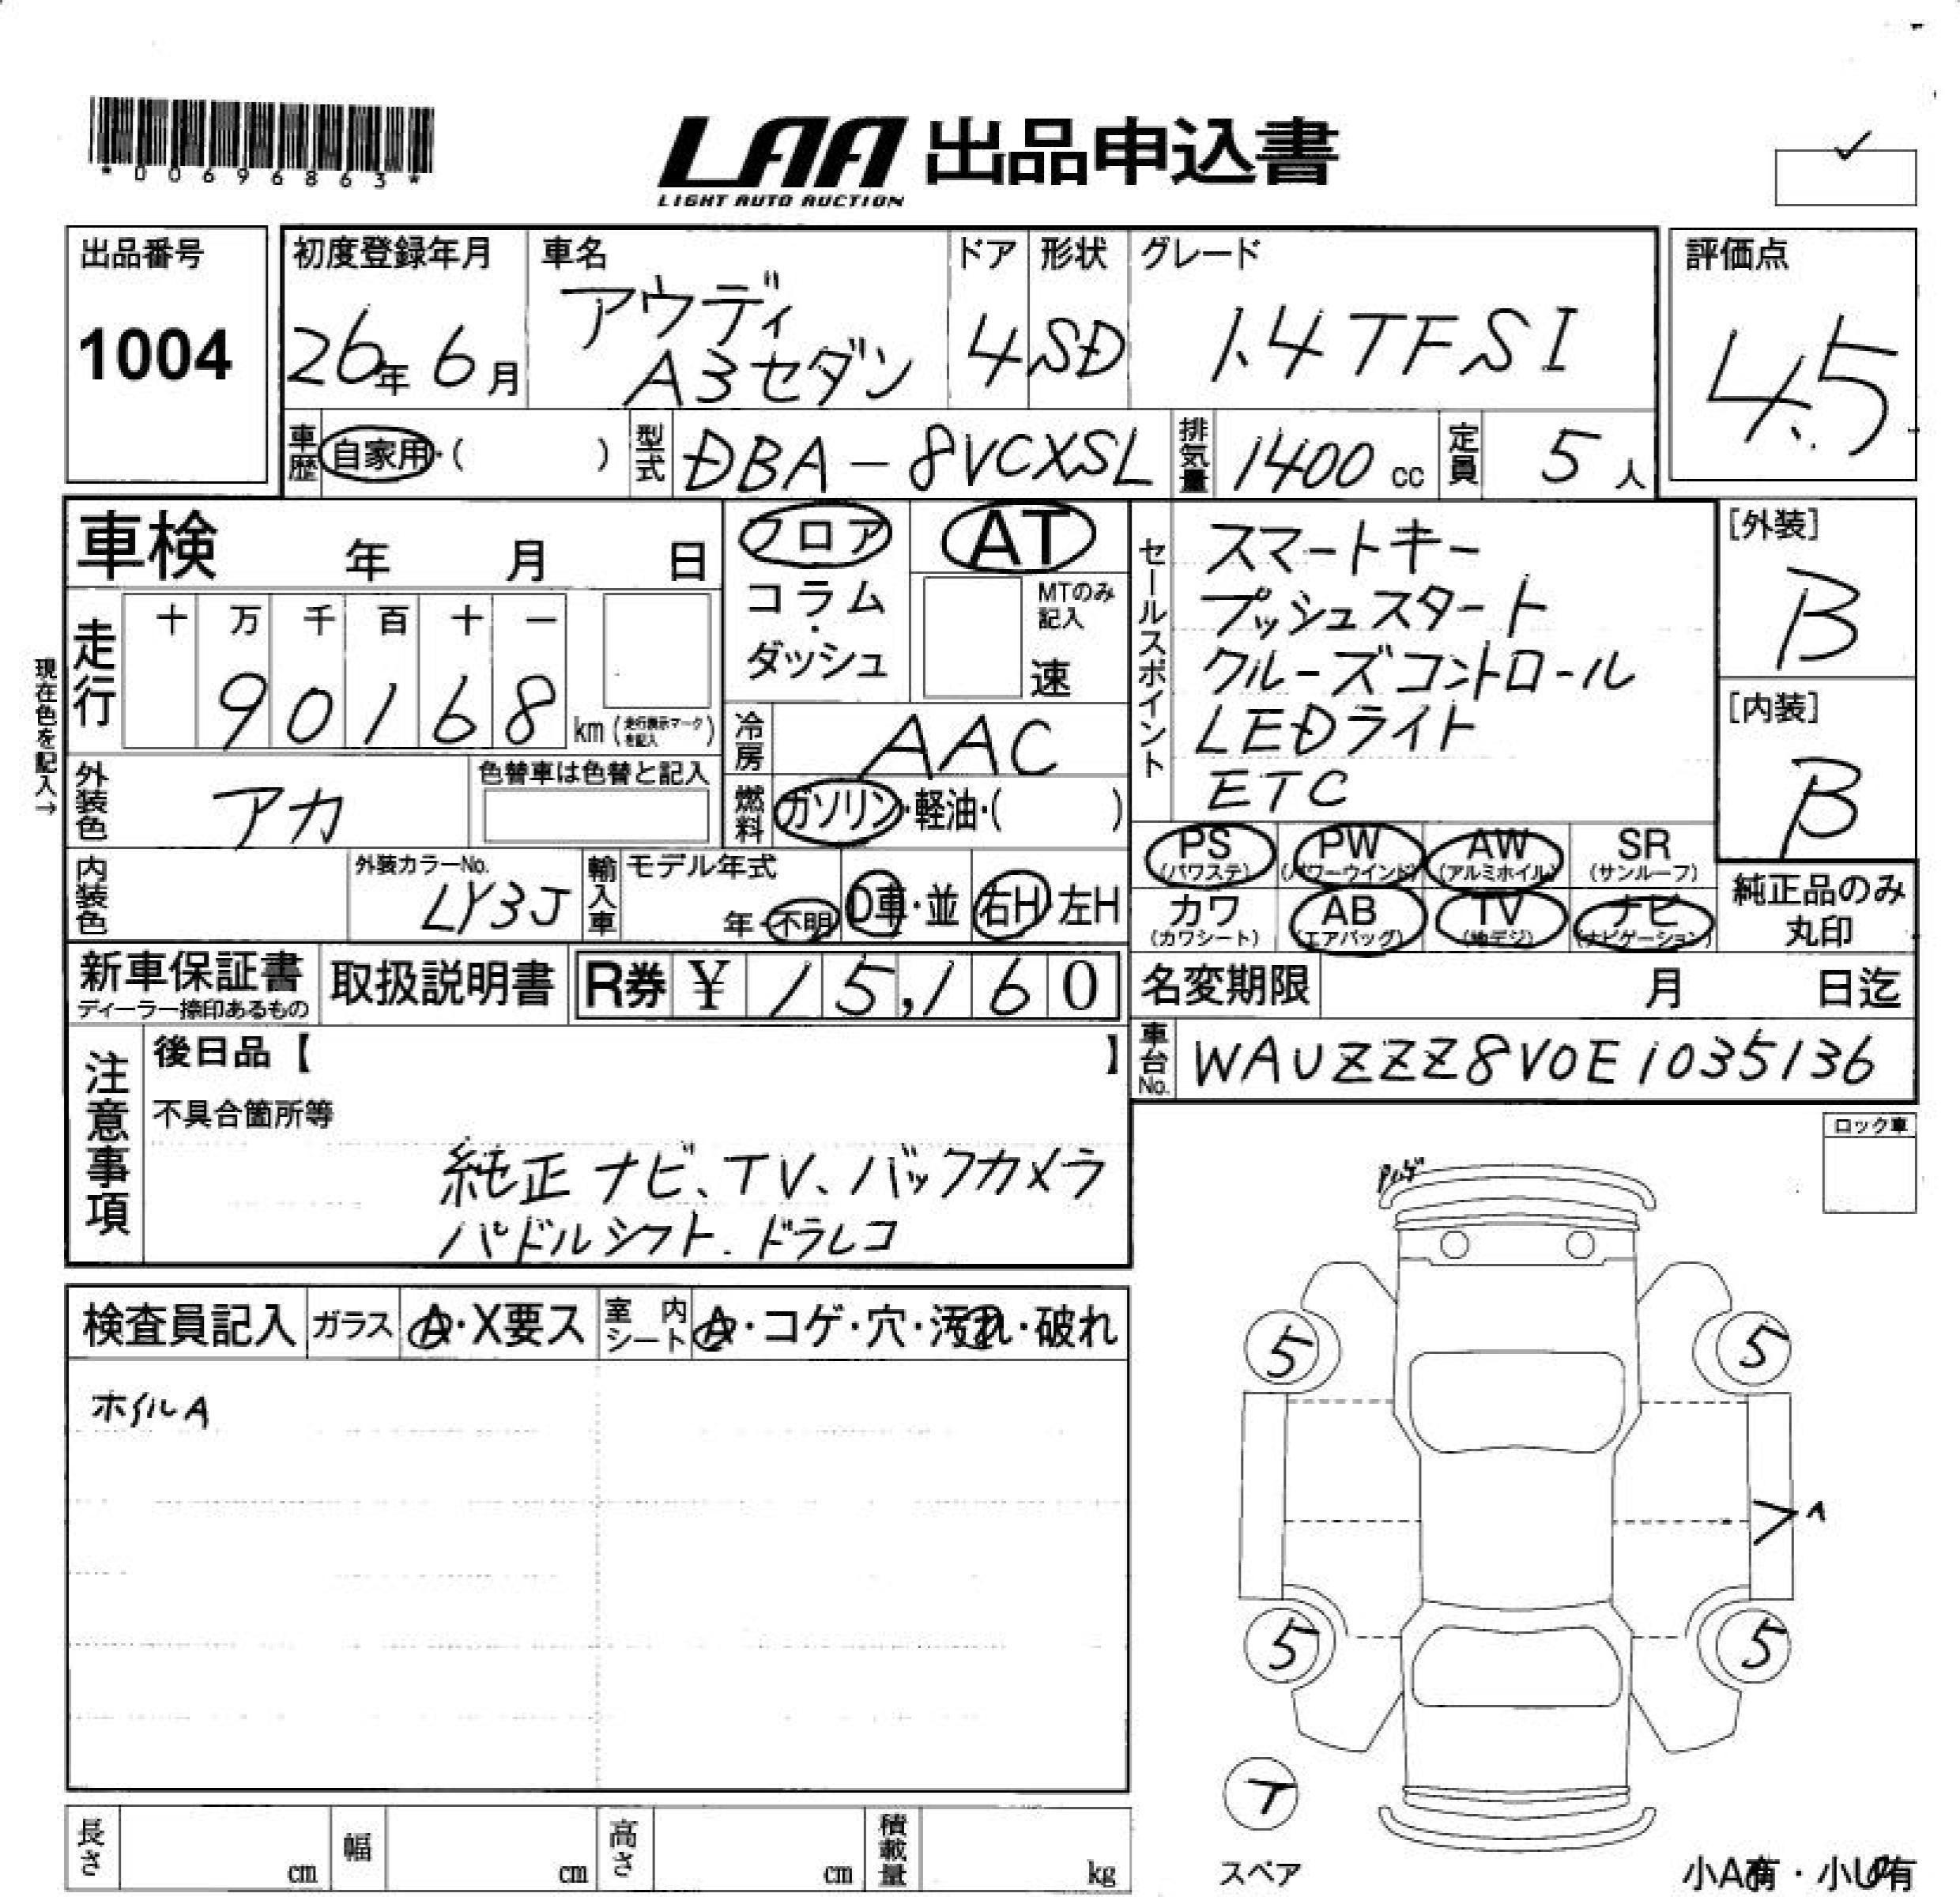 *00696863*
LAA 出品申込書
LIGHT AUTO AUCTION
出品番号
1004
初度登録年月
26年 6月
車名
アウディ
A3セダン
ドア
4
形状
SD
グレード
1.4TFSI
評価点
4.5
車歴 自家用・( )
型式 DBA-8VCXSL
排気量 1400 cc
定員 5 人
車検 年 月 日
フロア
コラム
・
ダッシュ
AT
MTのみ
記入
速
セールスポイント
スマートキー
プッシュスタート
クルーズコントロール
LEDライト
ETC
[外装]
B
[内装]
B
現在色を記入→
走行
十 万 千 百 十 一
9 0 1 6 8
km (走行表示マークを記入)
冷房 AAC
外装色 アカ
色替車は色替と記入
燃料 ガソリン・軽油・( )
PS PW AW SR
(パワステ) (パワーウインド) (アルミホイル) (サンルーフ)
カワ AB TV ナビ
(カワシート) (エアバッグ) (地デジ) (ナビゲーション)
純正品のみ
丸印
内装色
外装カラーNo.
LY3J
輸入車
モデル年式
年・不明
D車・並
右H 左H
新車保証書
ディーラー捺印あるもの
取扱説明書
R券 ¥ 15,160
名変期限 月 日迄
車台No. WAUZZZ8V0E1035136
注意事項
後日品【 】
不具合箇所等
純正ナビ、TV、バックカメラ
パドルシフト、ドラレコ
ロック車
検査員記入 ガラス A・X要ス
室内シート A・コゲ・穴・汚れ・破れ
ホイルA
5 5
5 5
スペア
長さ cm
幅 cm
高さ cm
積載量 kg
小A有・小U有